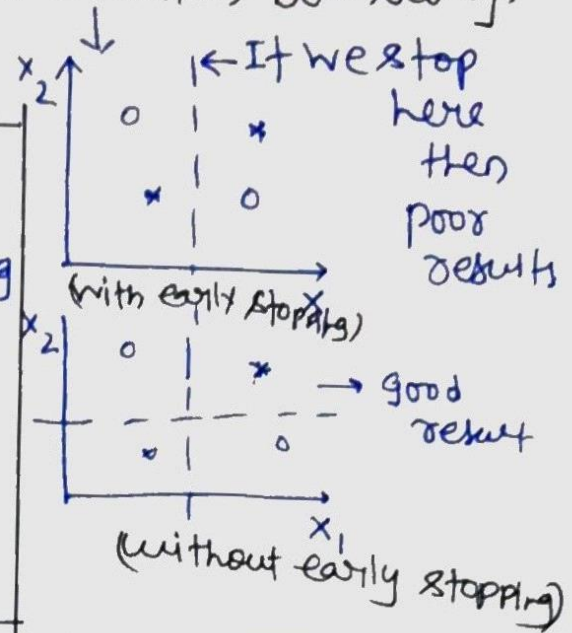 x2
← If we stop
here
then
poor
results
x
(with early stopping)
x2
→ good
result
x1
(without early stopping)